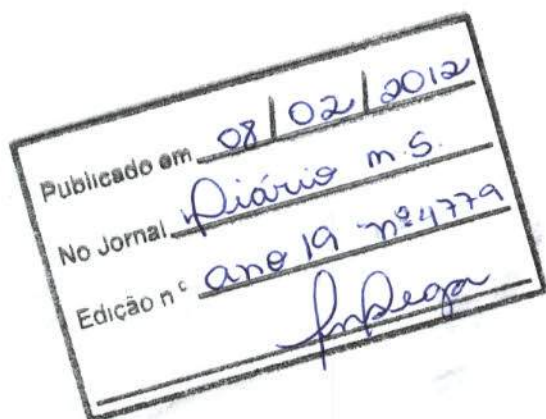 Publicado em 08/02/2012
No Jornal Diário m.s.
Edição nº ano 19 nº 4779